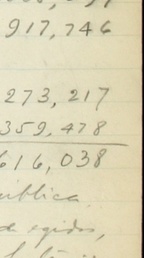 917,746
273,217
359,478
616,038
pública.
de egidos,